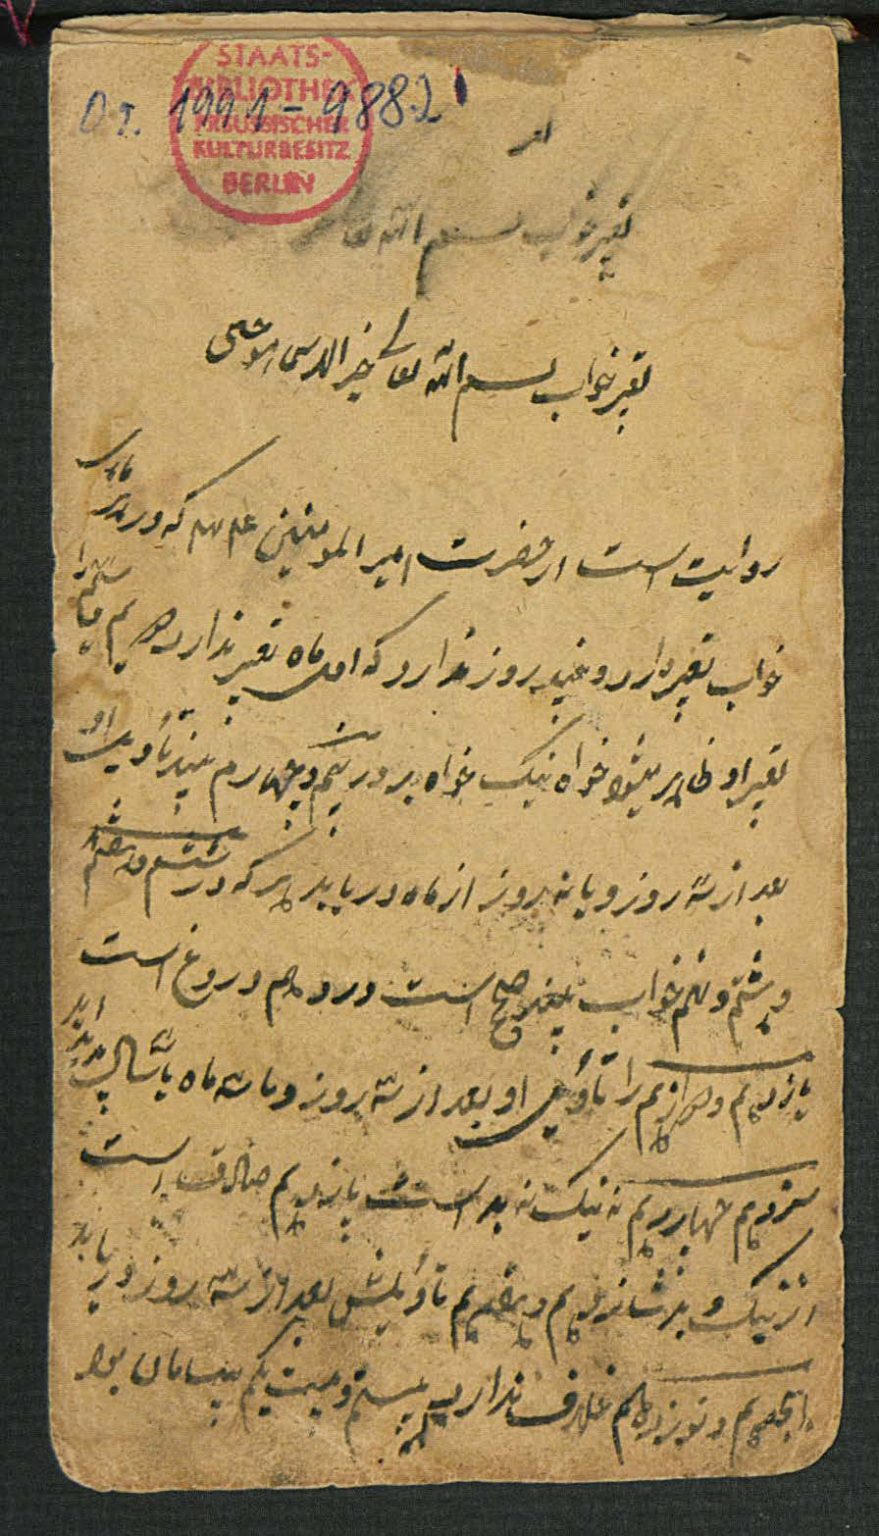 STAATS-
BIBLIOTHEK
PREUSSISCHER
KULTURBESITZ
BERLIN
Or. 1991-9882
تعبیر خواب بسم الله
تعبیر خواب بسم الله تعالی خیر
روایت است از حضرت امیر المومنین که در
خواب تعبیر دارد و روز ندارد که اول ماه تعبیر ندارد دویم
تعبیر او ظاهر میشود خواه نیک خواه بد در سیم و چهارم بیند تأویل او
بعد از سه روز و یا نه روز از ماه در یابد هر که در ششم و هفتم
و هشتم و نهم خواب بیند صحیح است در دهم دروغ است
یازدهم و دوازدهم را تأویل او بعد از سه روز و یا سه ماه یا سال پدید آید
سیزدهم چهاردهم نه نیک نه بد است پانزدهم صادق است
از نیک و بد شانزدهم و هفدهم تأویلش بعد از سه روز در یابد
هیجدهم و نوزدهم خلاف ندارد بیستم و بیست یکم بود